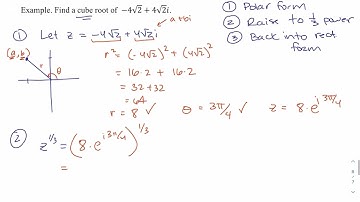 Example. Find a cube root of −4√2 + 4√2i.
① Polar form
② Raise to ⅓ power
③ Back into rect form
a+bi
① Let z = −4√2 + 4√2 i
(a,b)
θ
r² = (−4√2)² + (4√2)²
= 16·2 + 16·2
= 32+32
= 64
r = 8 ✓ θ = 3π/4 ✓ z = 8·e^{i 3π/4}
② z^{1/3} = (8·e^{i 3π/4})^{1/3}
=